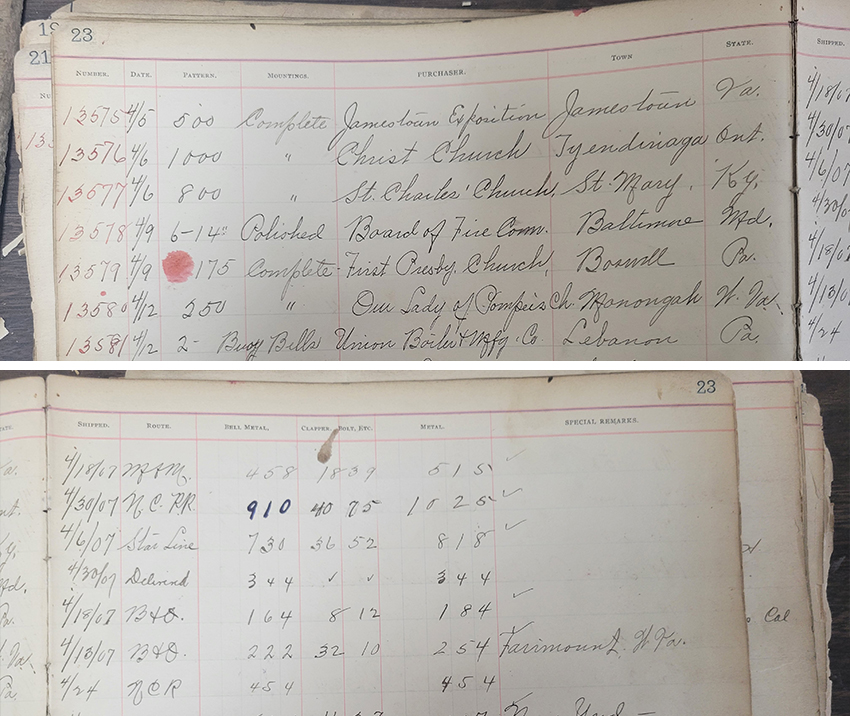 23
21
NUMBER. DATE. PATTERN. MOUNTINGS. PURCHASER. TOWN STATE. SHIPPED.
13575 4/5 500 Complete Jamestown Exposition Jamestown Va. 4/18/07
13576 4/6 1000 " Christ Church Tyendinaga Ont. 4/30/07
13577 4/6 800 " St. Charles' Church, St. Mary, Ky. 4/6/07
13578 4/9 6-14" Polished Board of Fire Com. Baltimore Md. 4/30/07
13579 4/9 175 Complete First Presby. Church, Boswell Pa. 4/18/07
13580 4/12 250 " Our Lady of Pompeis Ch. Monongah W. Va. 4/13/07
13581 4/12 2- Buoy Bells Union Boiler & Mfg. Co. Lebanon Pa. 4/24
23
SHIPPED. ROUTE. BELL METAL. CLAPPER, BOLT, ETC. METAL. SPECIAL REMARKS.
4/18/07 M&M. 458 18 39 515
4/30/07 N.C.RR. 910 40 75 1025
4/6/07 Star Line 730 36 52 818
4/30/07 Delivered 344 ✓ ✓ 344
4/18/07 B&O. 164 8 12 184
4/13/07 B&O. 222 32 10 254 Fairmount W. Va.
4/24 NCR 454 454
Cal